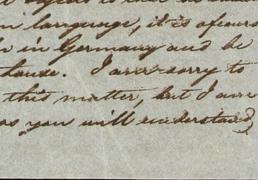 in language, it is of cours
in Germany and be
house. I am sorry to
this matter, but I am
as you will understand,